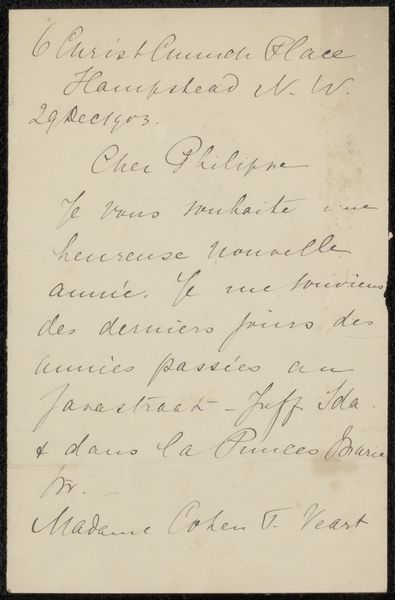 6 Christ Church Place
Hampstead N. W.
29 Dec 1903.
Cher Philippe
Je vous souhaite une
heureuse nouvelle
année. Je me souviens
des derniers jours des
années passées au
Javastraat - Juff Ida
& dans la Princes Marie
Madame Cohen T. Veart